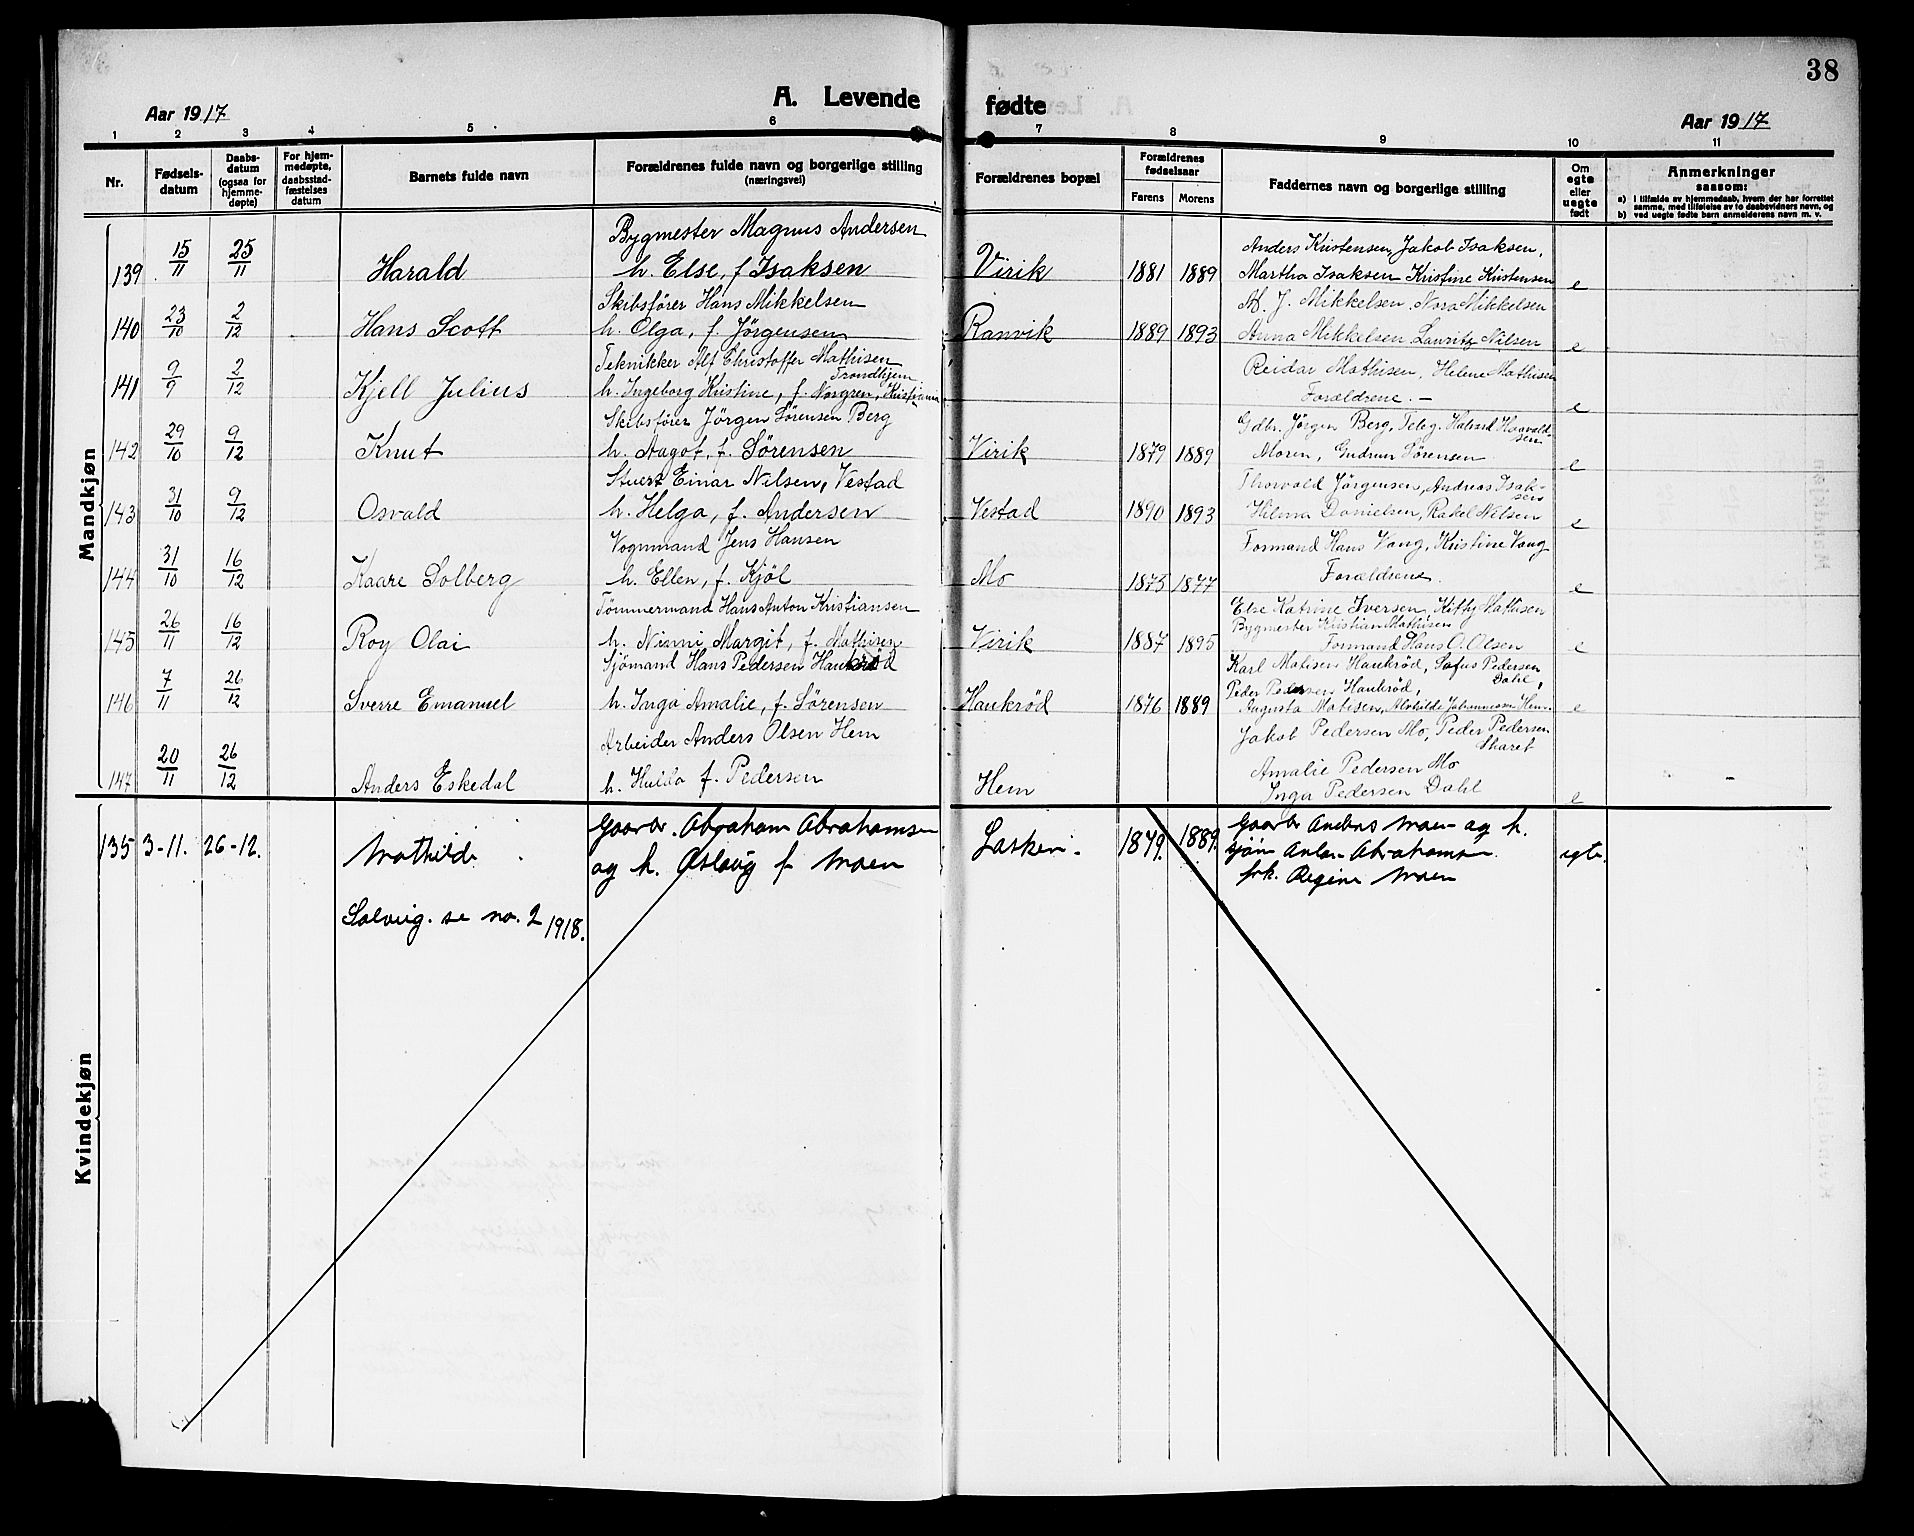 38
A. Levende fødte
Aar 1917
Aar 1917
1 2 3 4 5 6 7 8 9 10 11
Nr.
Fødsels-
datum
Daabs-
datum
(ogsaa for
hjemme-
døpte)
For hjem-
medøpte,
daabsstad-
fæstelses
datum
Barnets fulde navn
Forældrenes fulde navn og borgerlige stilling
(næringsvei)
Forældrenes bopæl
Forældrenes
fødselsaar
Farens Morens
Faddernes navn og borgerlige stilling
Om
egte
eller
uegte
født
Anmerkninger
saasom:
a) i tilfælde av hjemmedaab, hvem der har forrettet
samme, med tilføielse av to daabsvidners navn, og
b) ved uegte fødte barn anmelderens navn m. v.
Mandkjøn
Bygmester Magnus Andersen Anders Kristensen, Jakob Isaksen,
139 15/11 25/11 Harald h. Else, f. Isaksen Virik 1881 1889 Martha Isaksen Kristine Kristensen e
Skibsfører Hans Mikkelsen M. J. Mikkelsen. Nora Mikkelsen
140 23/10 2/12 Hans Scott h. Olga, f. Jörgensen Ranvik 1889 1893 Anna Mikkelsen Lauritz Nilsen e
Teknikker Alf Christoffer Mathisen Reidar Mathisen, Helene Mathisen
Trondhjem
141 9/9 2/12 Kjell Julius h. Ingeborg Kristine, f. Norgren, Kristiania Forældrene. — e
Skibsfører Jörgen Sörensen Berg Gdbr. Jörgen Berg, Teleg. Halvard Haavald-
sen
142 29/10 9/12 Knut h. Aagot, f. Sörensen Virik 1879 1889 Moren, Gudrun Sörensen e
Stuert Einar Nilsen, Vestad Thorvald Jörgensen, Andreas Isak-
sen
143 31/10 9/12 Osvald h. Helga, f. Andersen Vestad 1890 1893 Hilma Danielsen, Rakel Nilsen e
Vognmand Jens Hansen Formand Hans Vang, Kristine Vang
144 31/10 16/12 Kaare Solberg h. Ellen, f. Kjöl Mo 1875 1877 Forældrene. e
Tömmermand Hans Anton Kristiansen Else Katrine Iversen, Kitty Mathisen
Bygmester Kristian Mathisen
145 26/11 16/12 Roy Olai h. Nimmi Margit, f. Mathisen Virik 1887 1895 Formand Hans O. Olsen e
Sjömand Hans Pedersen Haukröd Karl Matisen Haukröd, Sofus Pedersen
Dahl,
Peder Pedersen Haukröd,
146 7/11 26/12 Sverre Emanuel h. Inga Amalie, f. Sörensen Haukröd 1876 1889 Augusta Matisen, Mathilde Johannesen Hem e
Arbeider Anders Olsen Hem Jakob Pedersen Mo, Peder Pedersen
Skaret
147 20/11 26/12 Anders Eskedal h. Hulda f. Pedersen Hem Amalie Pedersen Mo
Inga Pedersen Dahl e
Kvindekjøn
135 3-11. 26-12. Mathilde Gaarbr. Abraham Abrahamsen Lasken. 1879. 1889. Gaarbr Anders Moen og h.
og h. Aslaug f. Moen Anton Abrahamsen egte.
frk. Regine Moen
Solveig. se no. 2 1918.